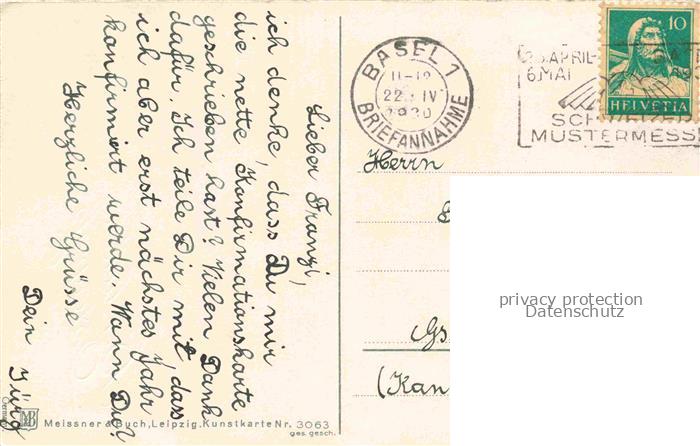 Lieber Franzi,
ich denke, dass Du mir
die nette Konfirmationskarte
geschrieben hast? Vielen Dank
dafür. Ich teile Dir mit, dass
ich aber erst nächstes Jahr
konfirmiert werde. Wann Du?
Herzliche Grüsse
Dein Jürg
BASEL 1
11-12
22. IV
1930
BRIEFANNAHME
APRIL-
6. MAI
MUSTERMESS
10
HELVETIA
Herrn
Gs
(Kan
privacy protection
Datenschutz
Meissner & Buch, Leipzig. Kunstkarte Nr. 3063
ges. gesch.